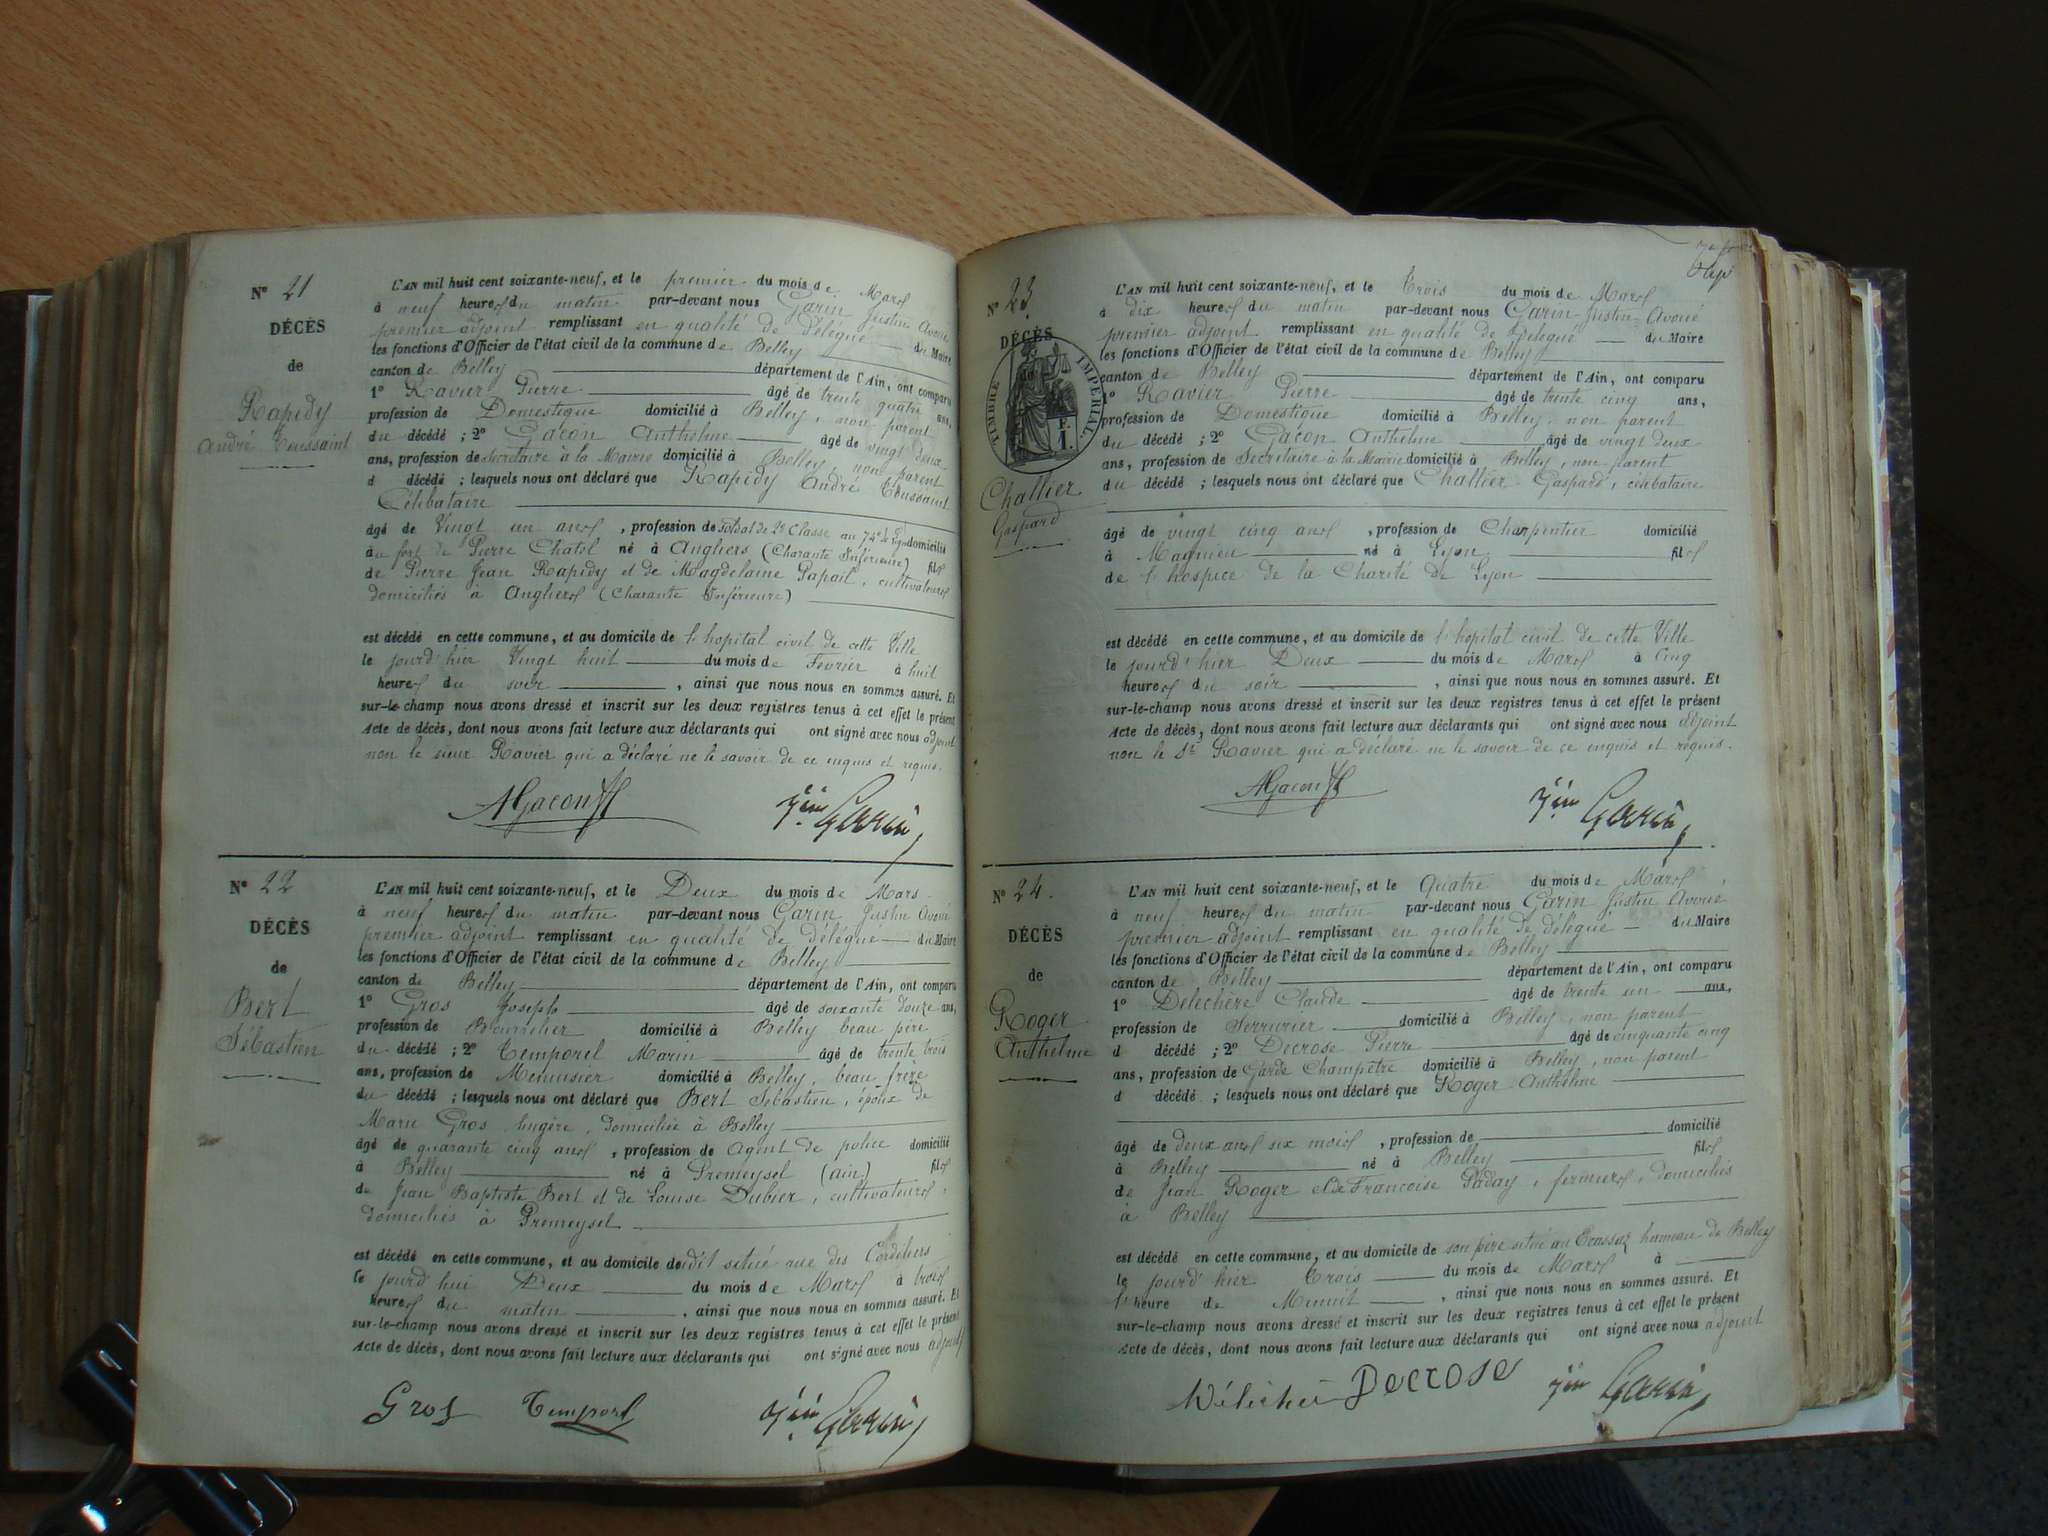 N° 21
DÉCÈS
de
Rapidy
André Toussaint
L'AN mil huit cent soixante-neuf, et le premier du mois de Mars
à neuf heures du matin par-devant nous Garin Justin Avoué
premier adjoint remplissant en qualité de délégué du Maire
les fonctions d'Officier de l'état civil de la commune de Belley
canton de Belley département de l'Ain, ont comparu
1° Ravier Pierre âgé de trente quatre ans,
profession de Domestique domicilié à Belley, non parent
du décédé ; 2° Gacon Anthelme âgé de vingt deux
ans, profession de Secrétaire à la Mairie domicilié à Belley, non parent
d décédé ; lesquels nous ont déclaré que Rapidy André Toussaint
Célibataire
âgé de Vingt un ans, profession de soldat de 2e Classe au 74e de ligne domicilié
au fort de Pierre Chatel né à Angliers (Charante Inférieure) fils
de Pierre Jean Rapidy et de Magdelaine Papail, cultivateurs
domiciliés à Angliers (Charante Inférieure)
est décédé en cette commune, et au domicile de l'hopital civil de cette Ville
le jourd'hier Vingt huit du mois de Fevrier à huit
heures du soir, ainsi que nous nous en sommes assuré. Et
sur-le-champ nous avons dressé et inscrit sur les deux registres tenus à cet effet le présent
acte de décès, dont nous avons fait lecture aux déclarants qui ont signé avec nous adjoint
non le sieur Ravier qui a déclaré ne le savoir de ce enquis et requis.
AGacon
Jin Garin
N° 22
DÉCÈS
de
Bert
Sébastien
L'AN mil huit cent soixante-neuf, et le Deux du mois de Mars
à neuf heures du matin par-devant nous Garin Justin Avoué
premier adjoint remplissant en qualité de délégué du Maire
les fonctions d'Officier de l'état civil de la commune de Belley
canton de Belley département de l'Ain, ont comparu
1° Gros Joseph âgé de soixante douze ans,
profession de Bourrelier domicilié à Belley beau père
du décédé ; 2° Temporel Marin âgé de trente trois
ans, profession de Menuisier domicilié à Belley, beau frère
du décédé ; lesquels nous ont déclaré que Bert Sébastien, époux de
Marie Gros lingère, domiciliée à Belley
âgé de quarante cinq ans, profession de Agent de police domicilié
à Belley né à Premeysel (ain) fils
de Jean Baptiste Bert et de Louise Dubier, cultivateurs,
domiciliés à Premeysel
est décédé en cette commune, et au domicile de dit situé rue des Cordeliers
le jourd'hui Deux du mois de Mars à trois
heures du matin, ainsi que nous nous en sommes assuré. Et
sur-le-champ nous avons dressé et inscrit sur les deux registres tenus à cet effet le présent
acte de décès, dont nous avons fait lecture aux déclarants qui ont signé avec nous adjoint
Gros Temporel Jin Garin
N° 23.
DÉCÈS
de
TIMBRE IMPERIAL
F.
1.
Challier
Gaspard
L'AN mil huit cent soixante-neuf, et le Trois du mois de Mars
à dix heures du matin par-devant nous Garin Justin Avoué
premier adjoint remplissant en qualité de Délégué du Maire
les fonctions d'Officier de l'état civil de la commune de Belley
canton de Belley département de l'Ain, ont comparu
1° Ravier Pierre âgé de trente cinq ans,
profession de Domestique domicilié à Belley, non parent
du décédé ; 2° Gacon Anthelme âgé de vingt deux
ans, profession de Secrétaire à la Mairie domicilié à Belley, non parent
du décédé ; lesquels nous ont déclaré que Challier Gaspard, célibataire
âgé de vingt cinq ans, profession de Charpentier domicilié
à Magnieu né à Lyon fils
de l'hospice de la Charité de Lyon
est décédé en cette commune, et au domicile de l'hopital civil de cette Ville
le jourd'hier Deux du mois de Mars à Cinq
heures du soir, ainsi que nous nous en sommes assuré. Et
sur-le-champ nous avons dressé et inscrit sur les deux registres tenus à cet effet le présent
acte de décès, dont nous avons fait lecture aux déclarants qui ont signé avec nous adjoint
non le Sr Ravier qui a déclaré ne le savoir de ce enquis et requis.
AGacon
Jin Garin
N° 24.
DÉCÈS
de
Roger
Anthelme
L'AN mil huit cent soixante-neuf, et le Quatre du mois de Mars
à neuf heures du matin par-devant nous Garin Justin Avoué
premier adjoint remplissant en qualité de délégué du Maire
les fonctions d'Officier de l'état civil de la commune de Belley
canton de Belley département de l'Ain, ont comparu
1° Delechère Claude âgé de trente un ans,
profession de Serrurier domicilié à Belley, non parent
d décédé ; 2° Decrose Pierre âgé de cinquante cinq
ans, profession de Garde Champêtre domicilié à Belley, non parent
d décédé ; lesquels nous ont déclaré que Roger Anthelme
âgé de deux ans six mois, profession de domicilié
à Belley né à Belley fils
de Jean Roger et de Francoise Paday, fermiers, domiciliés
à Belley
est décédé en cette commune, et au domicile de son père situé au Ecassaz hameau de Belley
le jourd'hier Trois du mois de Mars à
l'heure de Minuit, ainsi que nous nous en sommes assuré. Et
sur-le-champ nous avons dressé et inscrit sur les deux registres tenus à cet effet le présent
acte de décès, dont nous avons fait lecture aux déclarants qui ont signé avec nous adjoint
Decrose Jin Garin